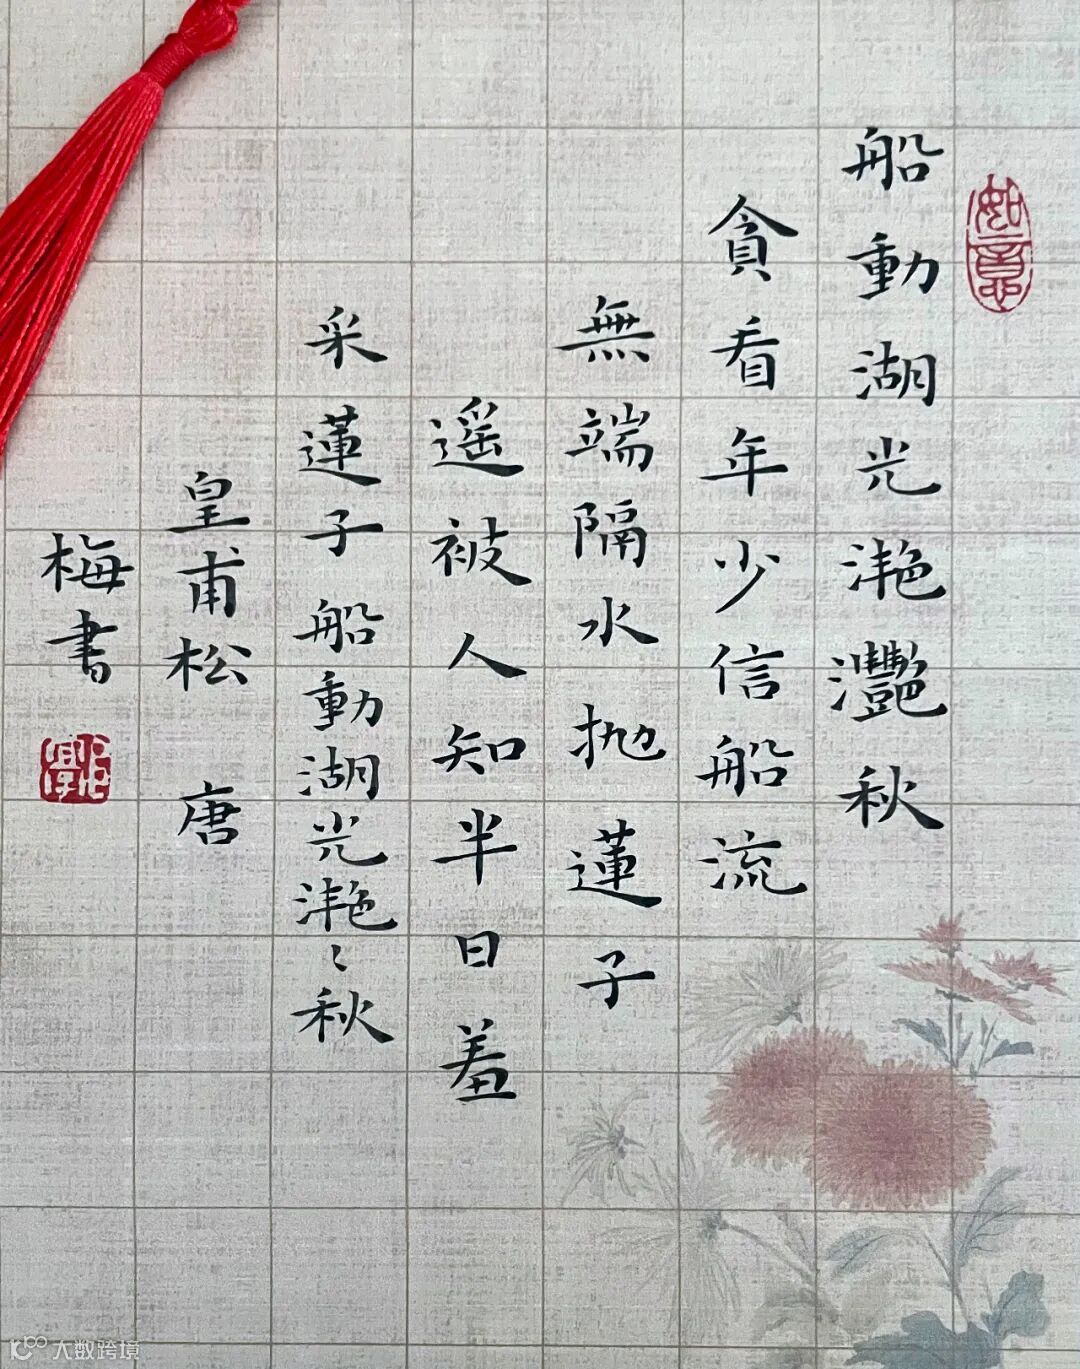 如意
船動湖光滟灩秋
貪看年少信船流
無端隔水抛蓮子
遥被人知半日羞
采蓮子船動湖光滟〻秋
皇甫松 唐
梅書
大数跨境